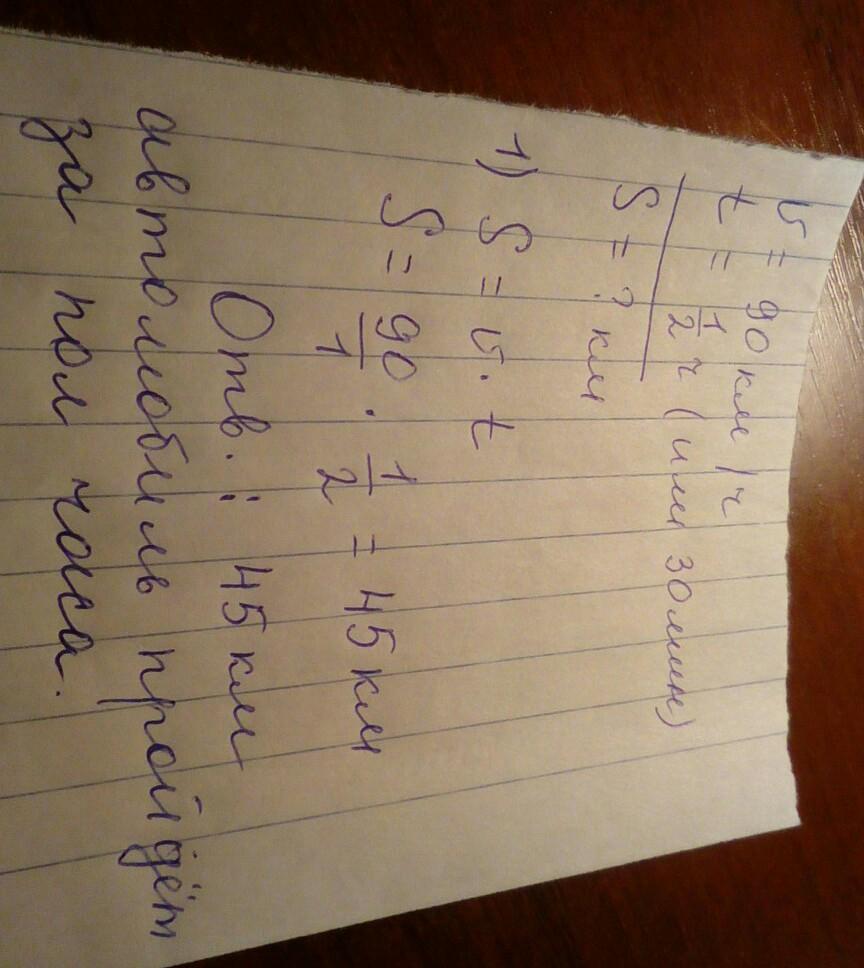 v = 90 км/ч
t = 1/2 ч (или 30 мин)
S = ? км
1) S = v · t
S = 90/1 · 1/2 = 45 км
Отв.: 45 км
автомобиль пройдёт
за пол часа.